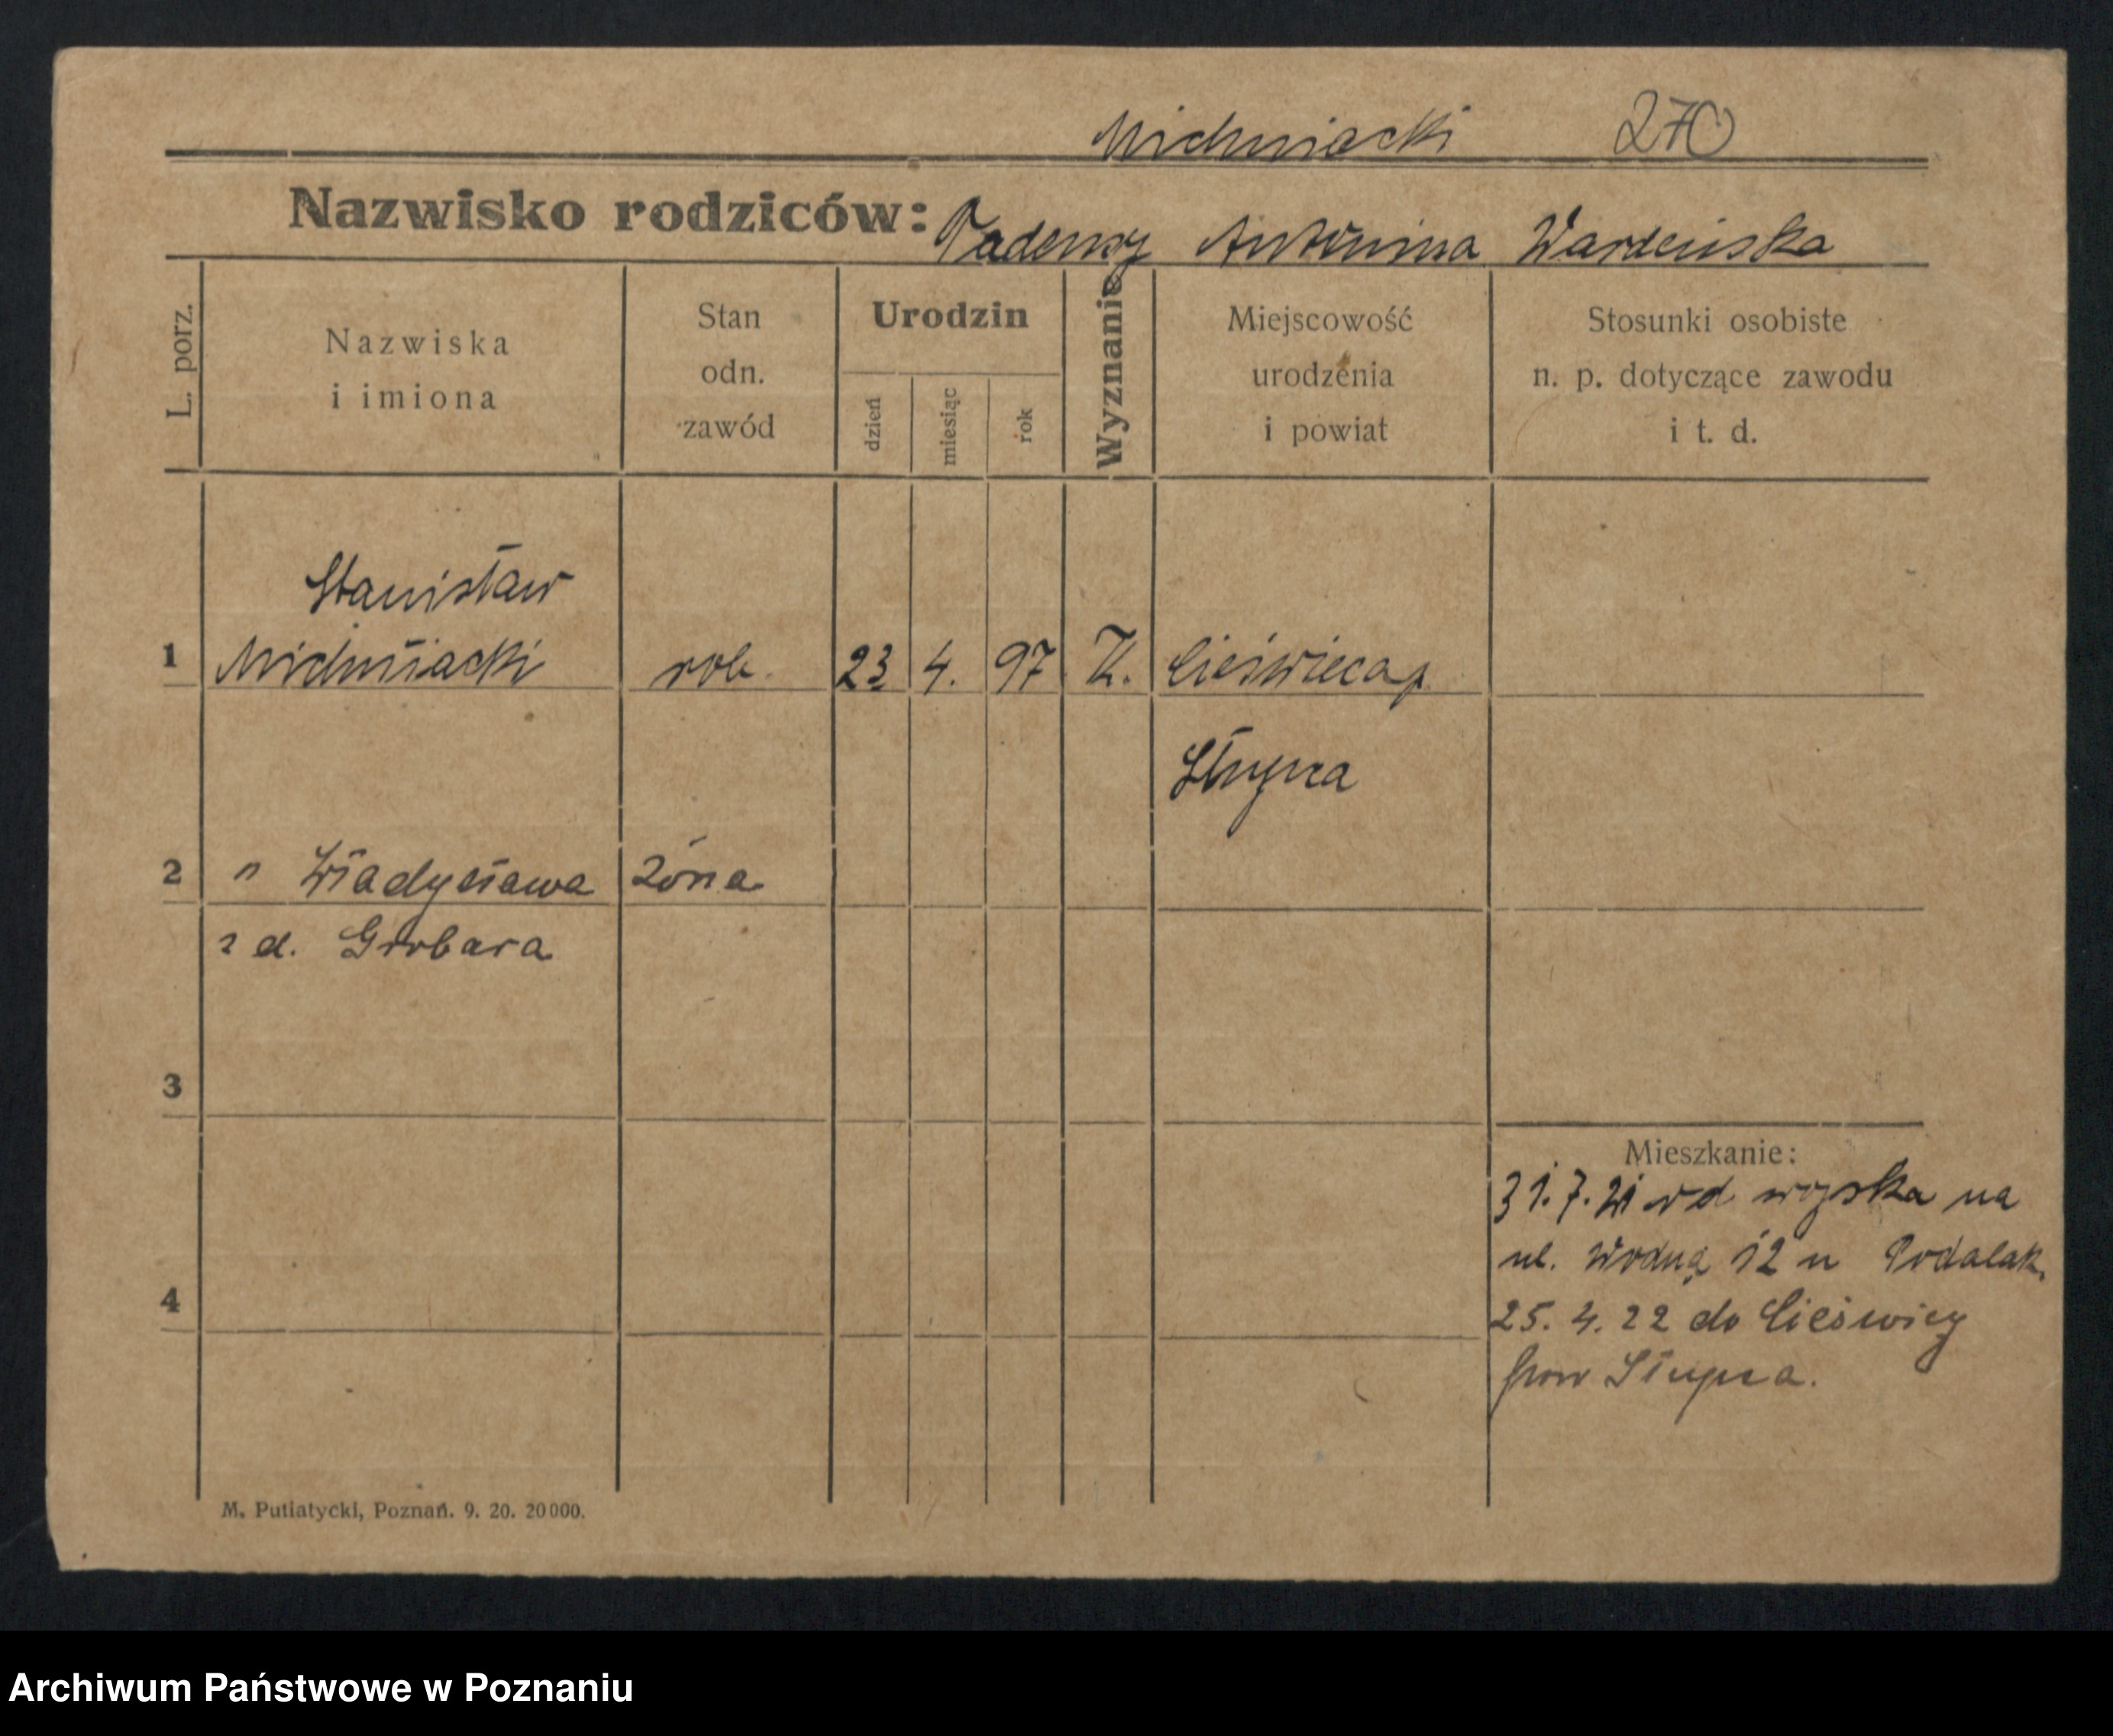 Michniacki 270
Nazwisko rodziców: Tadeusz Antonina Wardeńska
L. porz.
Nazwiska
i imiona
Stan
odn.
zawód
Urodzin
dzień
miesiąc
rok
Wyznanie
Miejscowość
urodzenia
i powiat
Stosunki osobiste
n. p. dotyczące zawodu
i t. d.
Stanisław
1 Michniacki rob. 23 4. 97 K. Cieświeca p
Słupca
2 " Władysława żona
z d. Grobara
3
Mieszkanie:
31.7.21 od wojska na
ul. Wodną 12 u Podalak.
4
25. 4. 22 do Cieświcy
pow Słupca.
M. Putiatycki, Poznań. 9. 20. 20000.
Archiwum Państwowe w Poznaniu